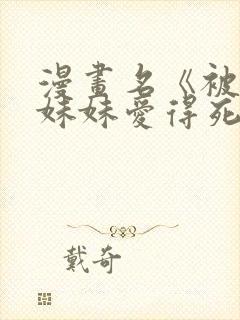 漫畫名《被
妹妹愛得死
戴奇